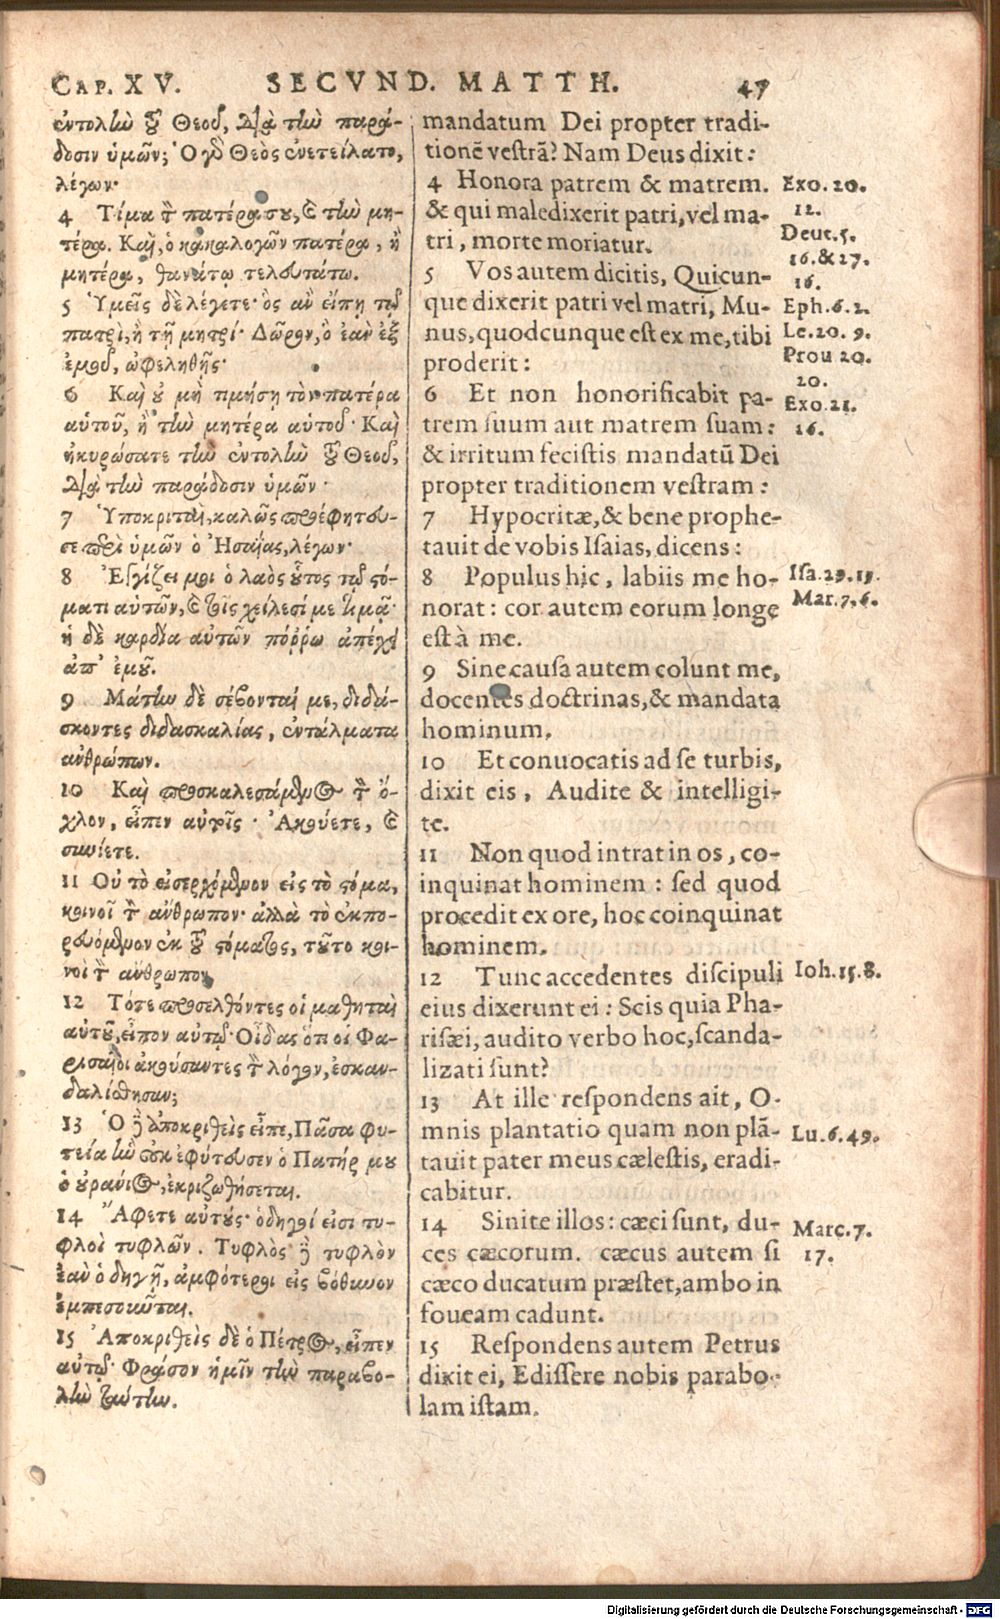 CAP. XV. SECVND. MATTH. 47
ἐντολὴν τοῦ Θεοῦ, διὰ τὴν παρά-
δοσιν ὑμῶν; Ὁ γὸ Θεὸς ἐνετείλατο,
λέγων·
4 Τίμα τὸν πατέρα σου, καὶ τὴν μη-
τέρα. Καὶ, ὁ κακαλογῶν πατέρα, ἢ
μητέρα, θανάτῳ τελευτάτω.
5 Ὑμεῖς δὲ λέγετε· ὃς ἂν εἴπῃ τῷ
πατρὶ, ἢ τῇ μητρί· Δῶρον, ὃ ἐὰν ἐξ
ἐμοῦ, ὠφεληθῇς·
6 Καὶ οὐ μὴ τιμήσῃ τὸν πατέρα
αὑτοῦ, ἢ τὴν μητέρα αὑτοῦ· Καὶ
ἠκυρώσατε τὴν ἐντολὴν τοῦ Θεοῦ,
διὰ τὴν παράδοσιν ὑμῶν·
7 Ὑποκριταὶ, καλῶς προέφητευ-
σε περὶ ὑμῶν ὁ Ἡσαΐας, λέγων·
8 Ἐγγίζει μοι ὁ λαὸς οὗτος τῷ στό-
ματι αὑτῶν, καὶ τοῖς χείλεσί με τιμᾷ·
ἡ δὲ καρδία αὐτῶν πόῤῥω ἀπέχει
ἀπ' ἐμοῦ.
9 Μάτην δὲ σέβονταί με, διδά-
σκοντες διδασκαλίας, ἐντάλματα
ἀνθρώπων.
10 Καὶ προσκαλεσάμενος τὸν ὄ-
χλον, εἶπεν αὐτοῖς· Ἀκούετε, καὶ
συνίετε.
11 Οὐ τὸ εἰσερχόμενον εἰς τὸ στόμα,
κοινοῖ τὸν ἄνθρωπον· ἀλλὰ τὸ ἐκπο-
ρευόμενον ἐκ τοῦ στόματος, τοῦτο κοι-
νοῖ τὸν ἄνθρωπον
12 Τότε προσελθόντες οἱ μαθηταὶ
αὐτοῦ, εἶπον αὐτῷ· Οἶδας ὅτι οἱ Φα-
ρισαῖοι ἀκούσαντες τὸν λόγον, ἐσκαν-
δαλίσθησαν;
13 Ὁ δὲ ἀποκριθεὶς εἶπε, Πᾶσα φυ-
τεία ἣν οὐκ ἐφύτευσεν ὁ Πατήρ μου
ὁ οὐράνιος, ἐκριζωθήσεται.
14 Ἄφετε αὐτούς· ὁδηγοί εἰσι τυ-
φλοὶ τυφλῶν. Τυφλὸς δὲ τυφλὸν
ἐὰν ὁδηγῇ, ἀμφότεροι εἰς βόθυνον
ἐμπεσοῦνται.
15 Ἀποκριθεὶς δὲ ὁ Πέτρος, εἶπεν
αὐτῷ· Φράσον ἡμῖν τὴν παραβο-
λὴν ταύτην.
mandatum Dei propter tradi-
tionē vestrā? Nam Deus dixit:
4 Honora patrem & matrem.
& qui maledixerit patri, vel ma-
tri, morte moriatur.
5 Vos autem dicitis, Quicun-
que dixerit patri vel matri, Mu-
nus, quodcunque est ex me, tibi
proderit:
6 Et non honorificabit pa-
trem suum aut matrem suam:
& irritum fecistis mandatū Dei
propter traditionem vestram:
7 Hypocritæ, & bene prophe-
tauit de vobis Isaias, dicens:
8 Populus hic, labiis me ho-
norat: cor autem eorum longe
est à me.
9 Sine causa autem colunt me,
docentes doctrinas, & mandata
hominum.
10 Et conuocatis ad se turbis,
dixit eis, Audite & intelligi-
te.
11 Non quod intrat in os, co-
inquinat hominem: sed quod
procedit ex ore, hoc coinquinat
hominem.
12 Tunc accedentes discipuli
eius dixerunt ei: Scis quia Pha-
risæi, audito verbo hoc, scanda-
lizati sunt?
13 At ille respondens ait, O-
mnis plantatio quam non plā-
tauit pater meus cælestis, eradi-
cabitur.
14 Sinite illos: cæci sunt, du-
ces cæcorum. cæcus autem si
cæco ducatum præstet, ambo in
foueam cadunt.
15 Respondens autem Petrus
dixit ei, Edissere nobis parabo-
lam istam.
Exo. 20.
12.
Deut. 5.
16. & 27.
16.
Eph. 6. 2.
Le. 20. 9.
Prou 20.
20.
Exo. 21.
16.
Isa. 29. 13.
Mar. 7, 6.
Ioh. 15. 8.
Lu. 6. 49.
Marc. 7.
17.
Digitalisierung gefördert durch die Deutsche Forschungsgemeinschaft - DFG